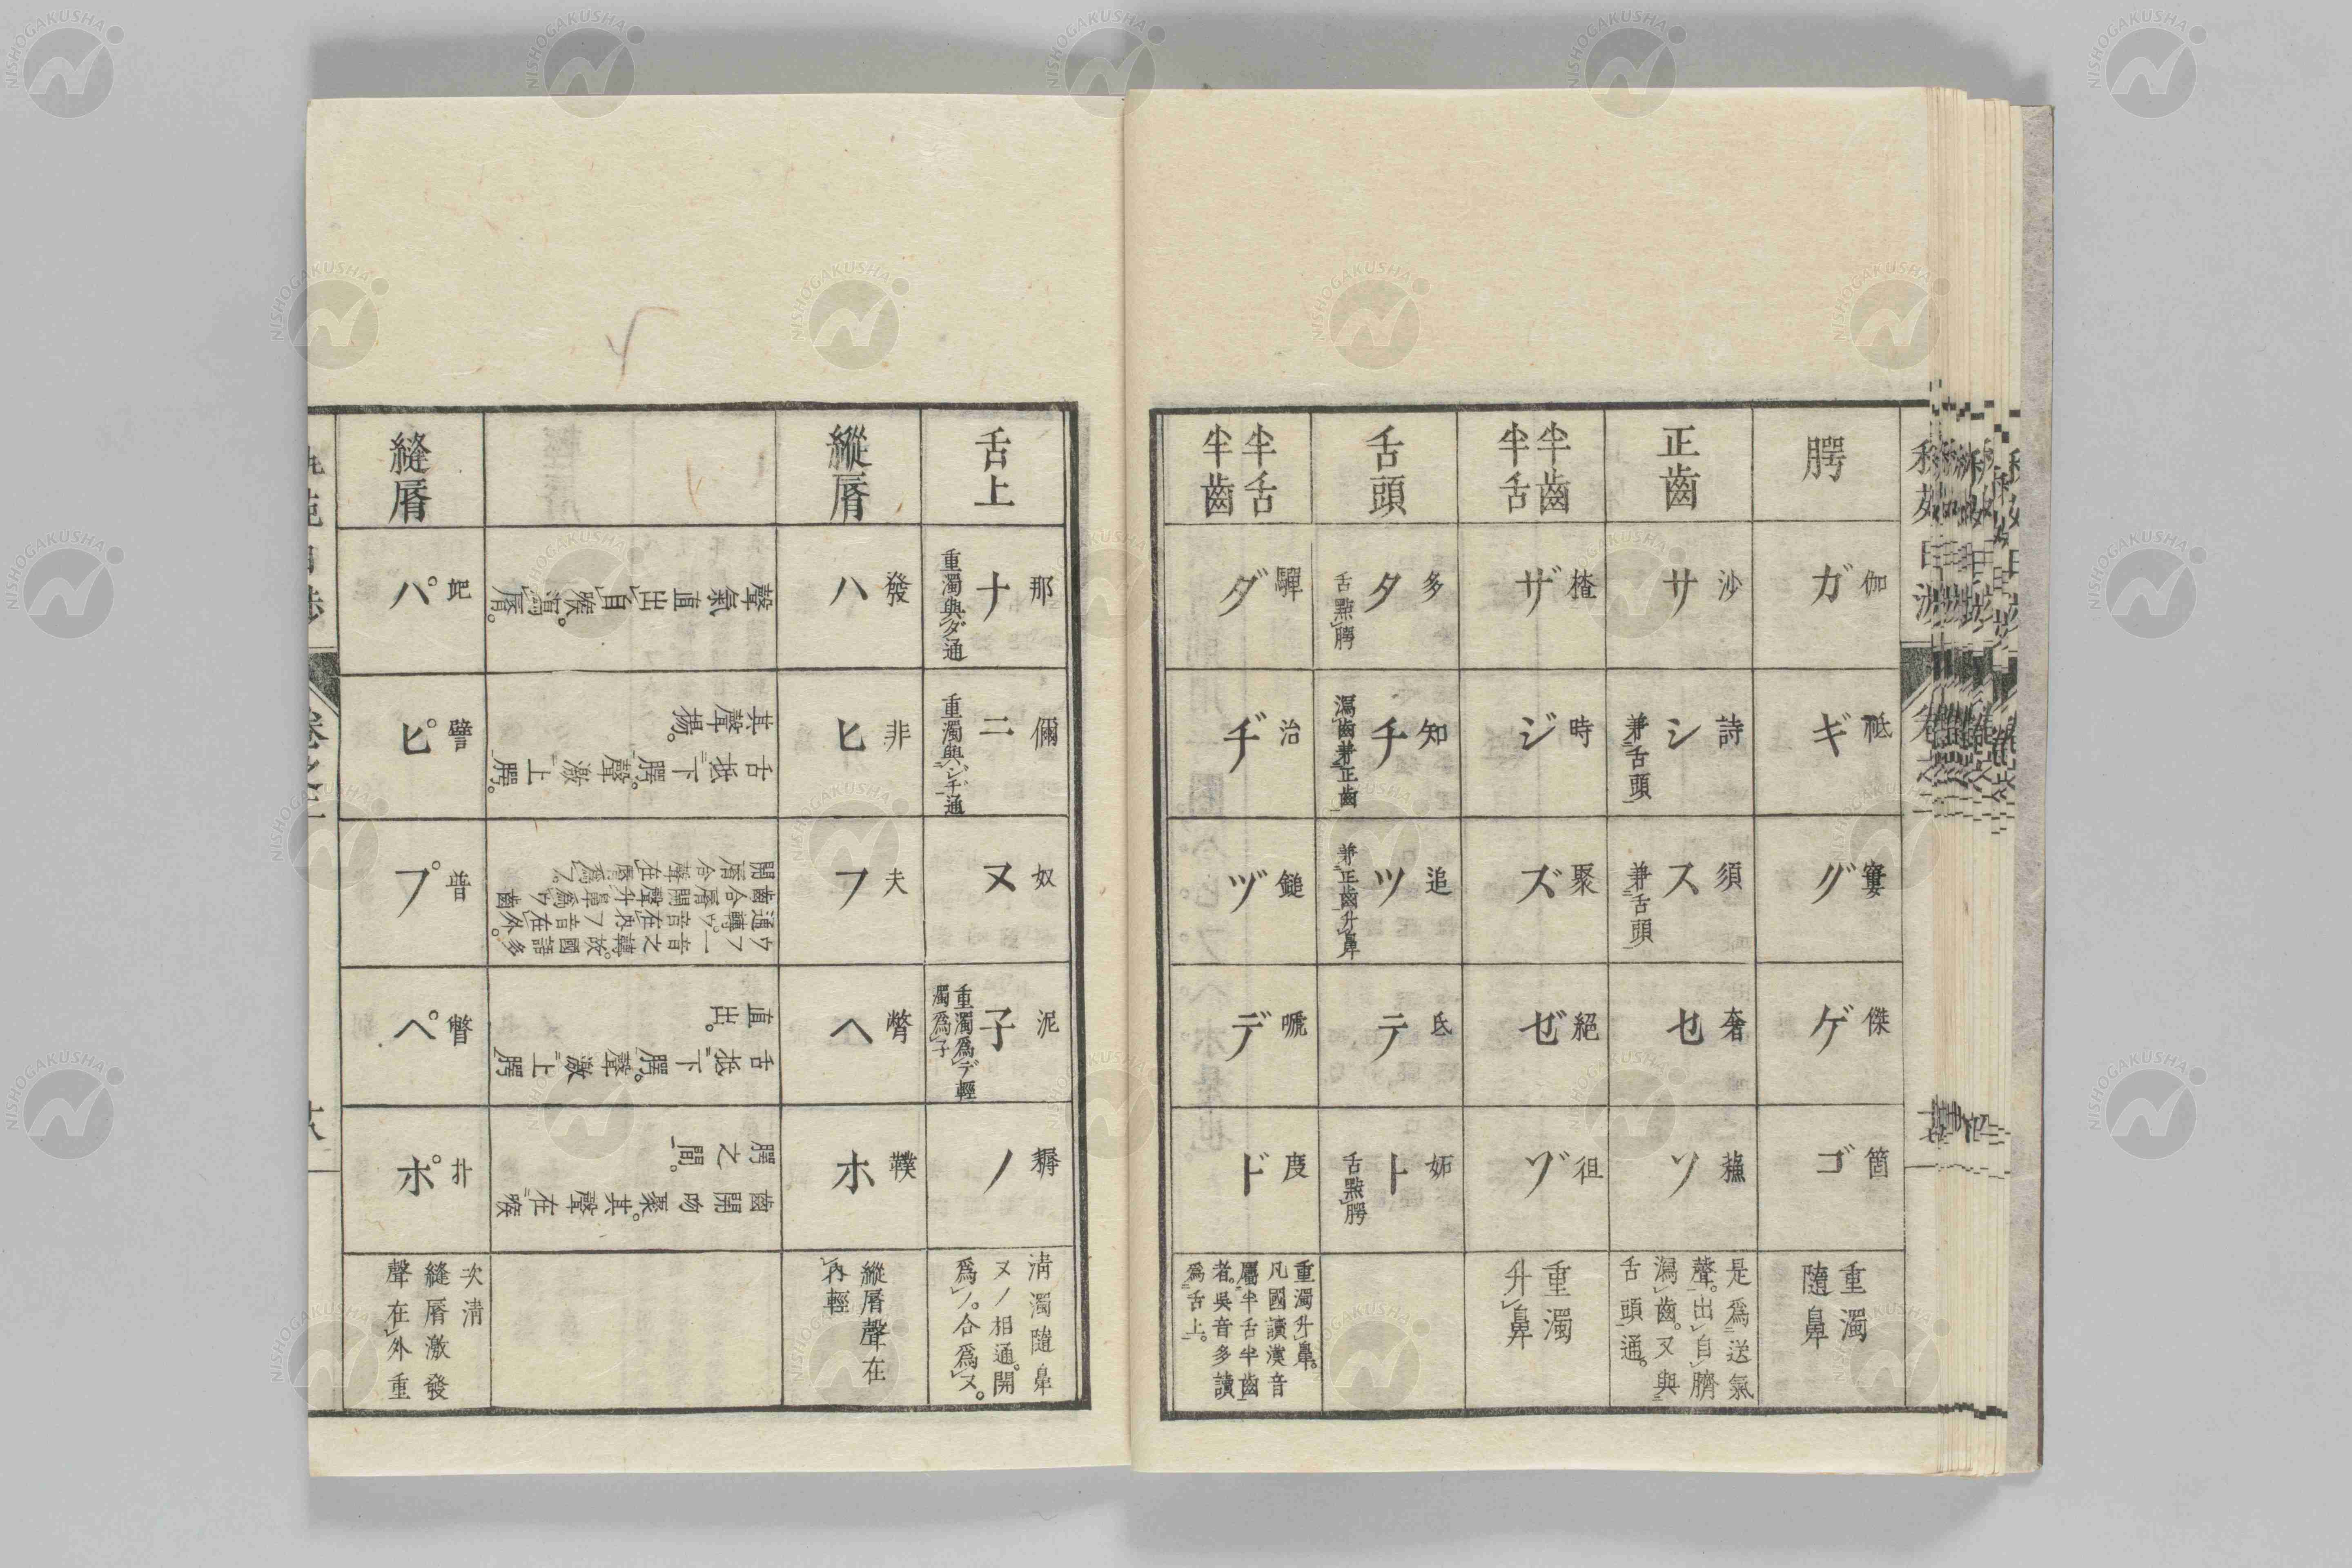 腭
伽
ガ
祗
ギ
窶
グ
傑
ゲ
箇
ゴ
重濁
隨鼻
正齒
沙
サ
詩
シ
兼舌頭
須
ス
兼舌頭
奢
セ
蘓
ソ
是爲送氣
聲。出自臍
瀉齒。又與
舌頭通。
半齒
半舌
楂
ザ
時
ジ
聚
ズ
絕
ゼ
徂
ゾ
重濁
升鼻
舌頭
多
タ
舌點腭
知
チ
瀉齒兼正齒
追
ツ
兼正齒升鼻
氐
テ
妬
ト
舌點腭
半舌
半齒
驒
ダ
治
ヂ
鎚
ヅ
嗁
デ
度
ド
重濁升鼻。
凡國讀漢音
屬半舌半齒
者。吳音多讀
爲舌上。
舌上
那
ナ
重濁與ダ通
儞
ニ
重濁與ジヂ通
奴
ヌ
泥
子
重濁爲デ輕
濁爲子
耨
ノ
淸濁隨鼻
ヌノ相通。開
爲ノ。合爲ヌ。
縱脣
發
ハ
非
ヒ
夫
フ
幣
ヘ
轐
ホ
縱脣聲在
內輕
聲氣直出自喉瀉脣。
其聲揚。
舌抵下腭。聲激上腭。
開脣合聲在脣爲フ。
齒合脣開聲升鼻爲ウ
通轉ウ音在內フ音在外。
ウフ一音之轉。故國語多
直出。
舌抵下腭。聲激上腭
腭之間。
齒開吻聚。其聲在喉
縫脣
葩
パ
譬
ピ
普
プ
瞥
ペ
ポ
次淸
縫脣激發
聲在外重